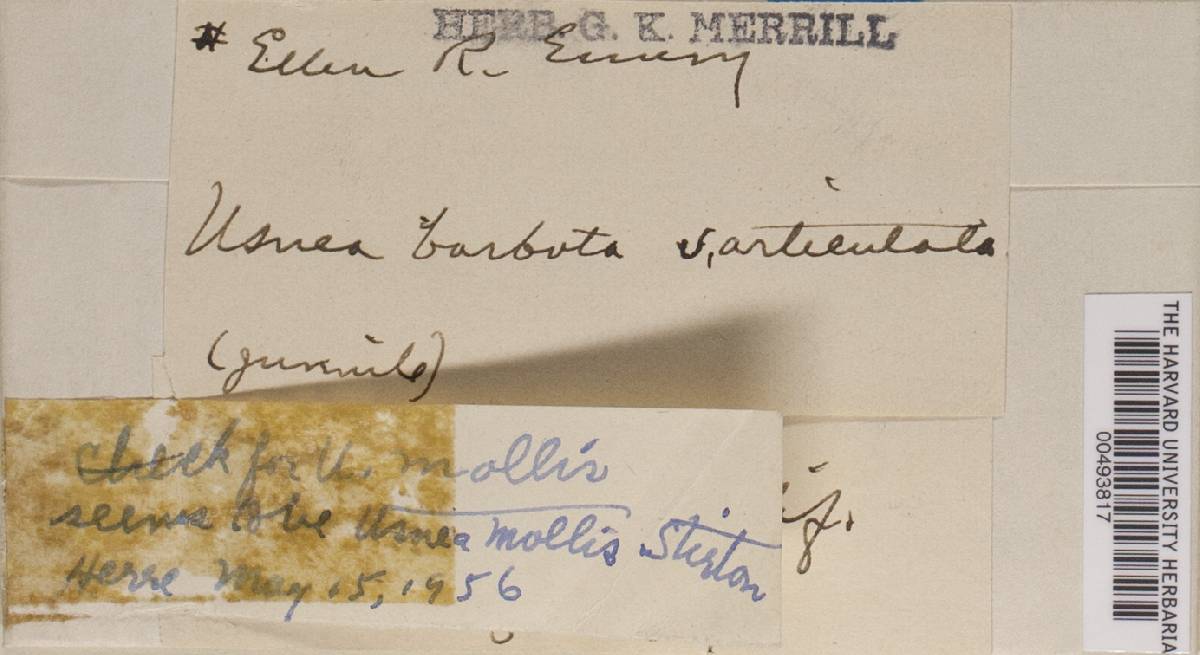 HERB. G. K. MERRILL
# Ellen R. Emery
Usnea barbata v. articulata
(juvenile)
check for U. mollis
seems to be Usnea mollis Stirton
Herre May 15, 1956
THE HARVARD UNIVERSITY HERBARIA
00493817